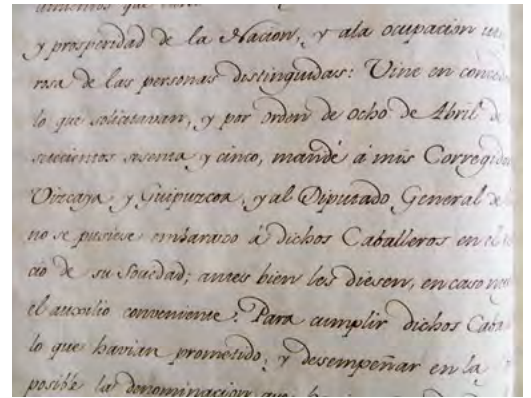 y prosperidad de la Nacion, y ala ocupacion
rosa de las personas distinguidas: Vine en
lo que solicitavan, y por orden de ocho de Abril de
setecientos sesenta y cinco, mandé á mis
Vizcaya, y Guipuzcoa, y al Diputado General de
no se pusiese embarazo á dichos Caballeros en el
cio de su Sociedad; antes bien les diesen, en caso
el auxilio conveniente. Para cumplir dichos
lo que havian prometido, y desempeñar en la
posible la denominacion que